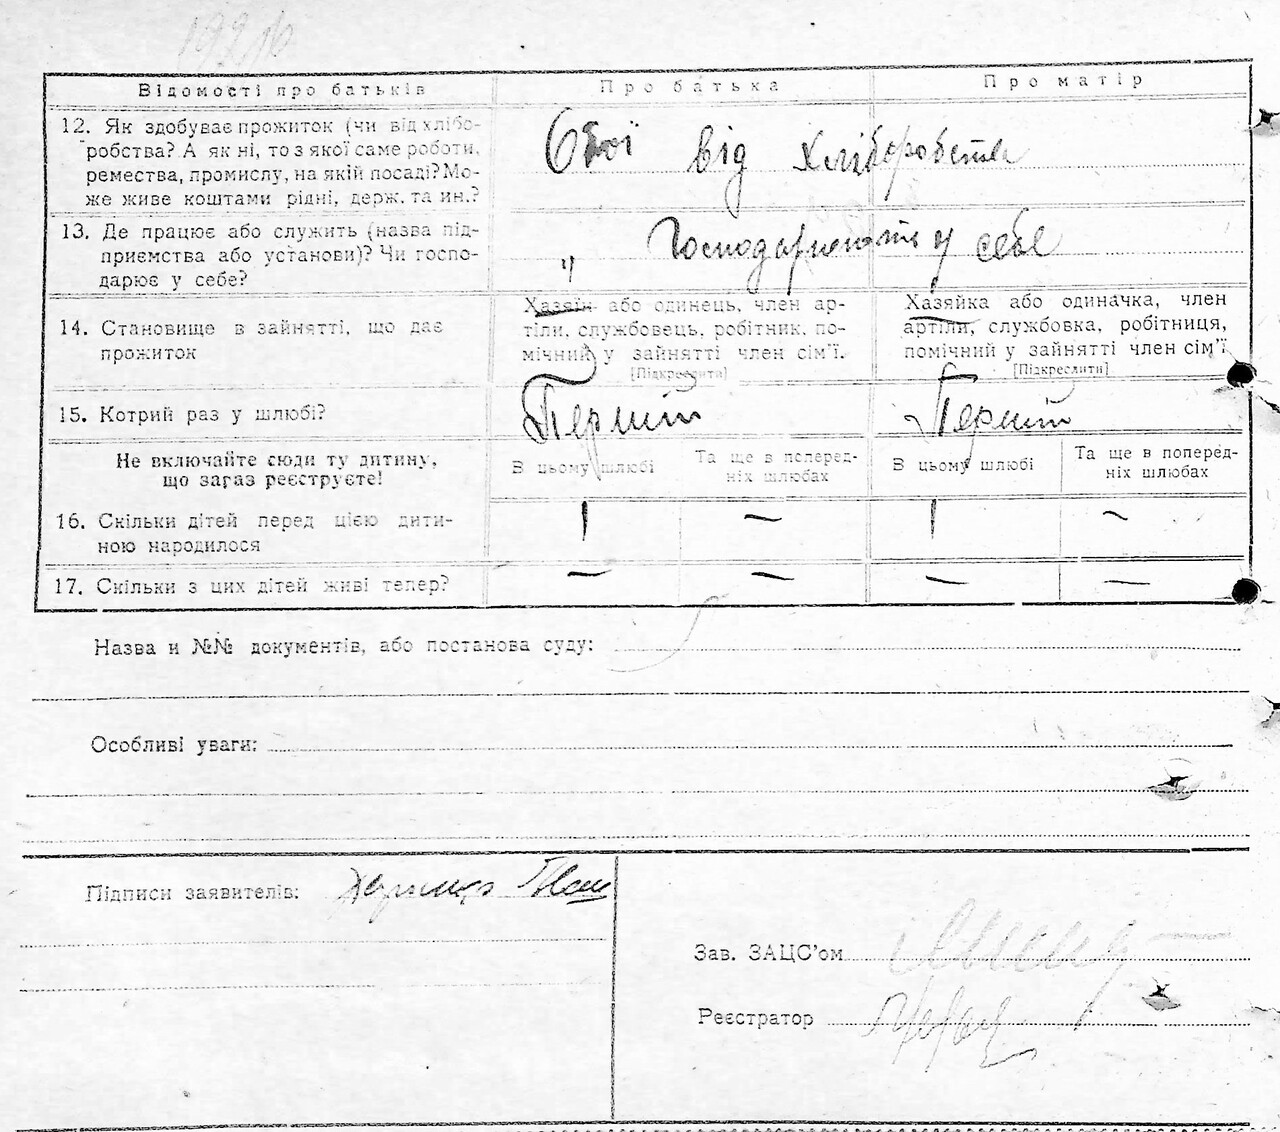 Відомості про батьків Про батька Про матір
12. Як здобуває прожиток (чи від хлібо-
робства? А як ні, то з якої саме роботи,
ремества, промислу, на якій посаді? Мо-
же живе коштами рідні, держ. та ин.?
Обої від хліборобства
13. Де працює або служить (назва під-
приємства або установи)? Чи госпо-
дарює у себе?
" Господарюють у себе
14. Становище в зайнятті, що дає
прожиток
Хазяїн або одинець, член ар-
тіли, службовець, робітник, по-
мічний у зайнятті член сім'ї.
[Підкреслити]
Хазяйка або одиначка, член
артіли, службовка, робітниця,
помічний у зайнятті член сім'ї
[Підкреслити]
15. Котрий раз у шлюбі? Перший Перший
Не включайте сюди ту дитину,
що загаз реєструєте!
В цьому шлюбі
Та ще в поперед-
ніх шлюбах
В цьому шлюбі
Та ще в поперед-
ніх шлюбах
16. Скільки дітей перед цією дити-
ною народилося
1 — 1 —
17. Скільки з цих дітей живі тепер? — — — —
Назва и №№ документів, або постанова суду:
Особливі уваги:
Підписи заявителів:
Зав. ЗАЦС'ом
Реєстратор